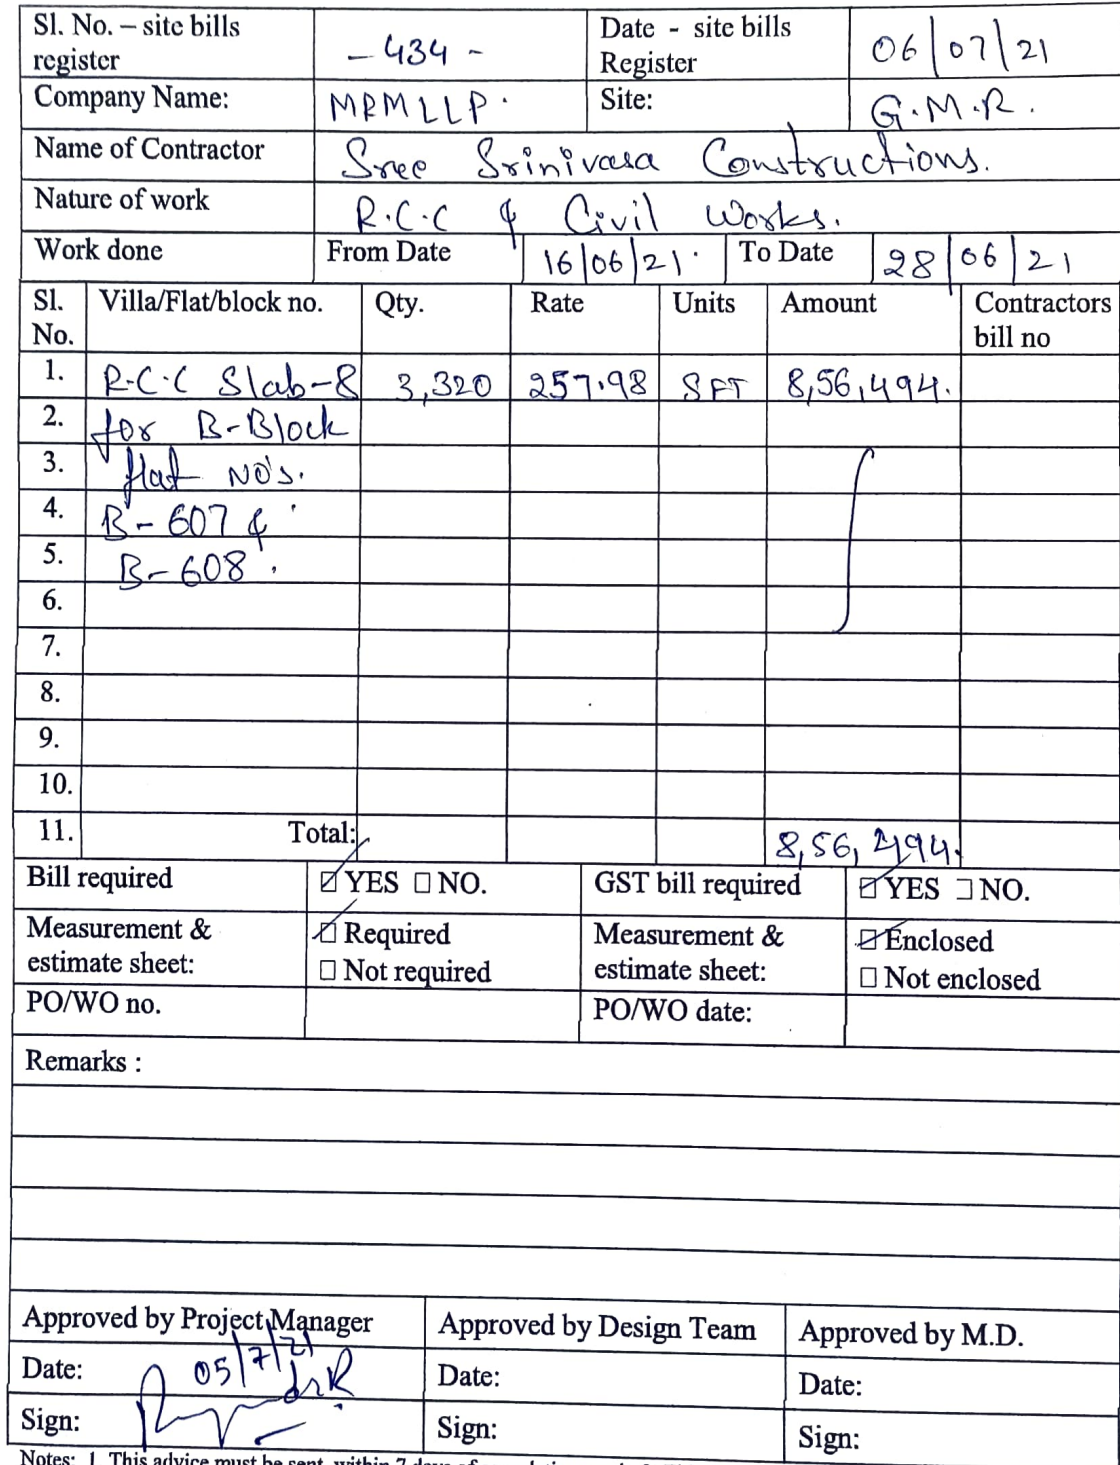 Sl. No. – site bills register - 434 - Date - site bills Register 06/07/21
Company Name: MRMLLP. Site: G.M.R.
Name of Contractor Sree Srinivasa Constructions.
Nature of work R.C.C & Civil Works.
Work done From Date 16/06/21. To Date 28/06/21
Sl. No. Villa/Flat/block no. Qty. Rate Units Amount Contractors bill no
1. R.C.C Slab-8 3,320 257.98 SFT 8,56,494.
2. for B-Block
3. flat NO's.
4. B-607 &
5. B-608.
6.
7.
8.
9.
10.
11. Total: 8,56,494.
Bill required ☑ YES ☐ NO. GST bill required ☑ YES ☐ NO.
Measurement & estimate sheet: ☑ Required ☐ Not required Measurement & estimate sheet: ☑ Enclosed ☐ Not enclosed
PO/WO no. PO/WO date:
Remarks :
Approved by Project Manager Approved by Design Team Approved by M.D.
Date: 05/7/21 Date: Date:
Sign: Sign: Sign:
Notes: 1. This advice must be sent within 7 days of